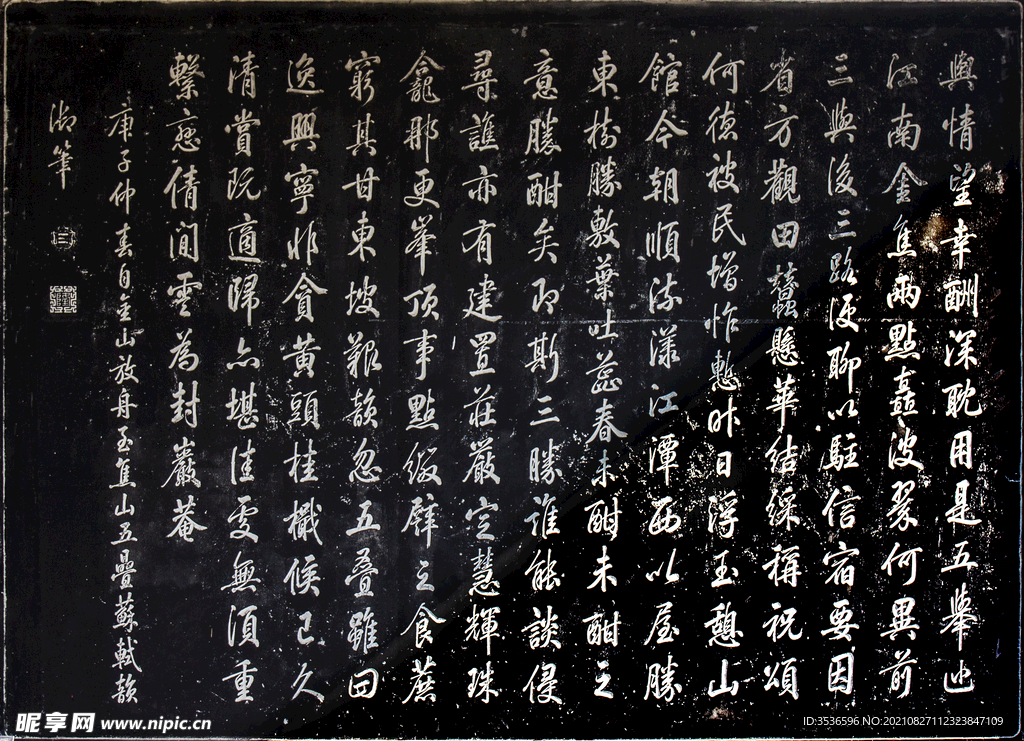 輿情望幸酬深耽用是五舉巡
江南金焦兩點矗波翠何異前
三與後三路便聊以駐信宿要因
省方觀田蠶懸華結綵稱祝頌
何德被民增怍慙昨日浮玉憩山
館今朝順流漾江潭西以屋勝
東樹勝敷葉吐蕊春未酣未酣之
意勝酣矣即斯三勝誰能談侵
尋譙亦有建置莊嚴定慧輝珠
龕那更峯頂事點綴辟之食蔗
窮其甘東坡艱韻忽五叠雖曰
逸興寧非貪黃頭桂檝候已久
清賞既適歸亦堪佳處無須重
繫戀倩閒雲為封巖菴
庚子仲春自金山放舟至焦山五疊蘇軾韻
御筆
昵享网 www.nipic.cn
ID:3536596 NO:20210827112323847109